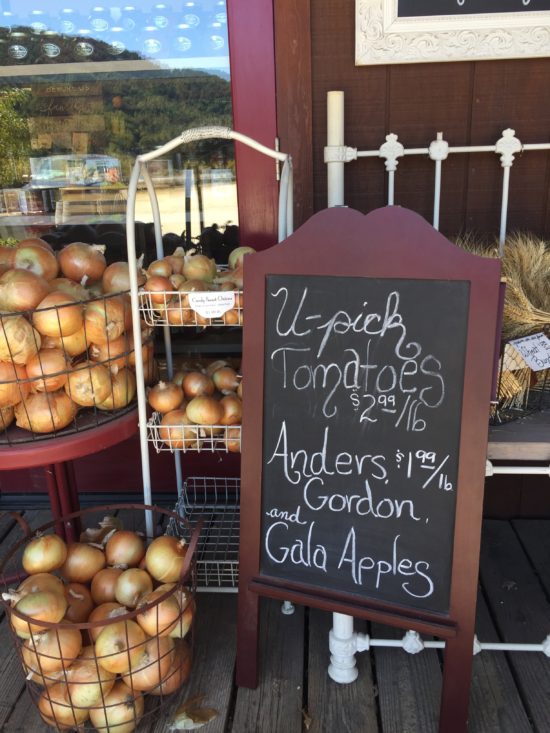 Candy Sweet Onions
U-pick
Tomatoes
$2.99/lb
Anders, $1.99/lb
Gordon,
and
Gala Apples